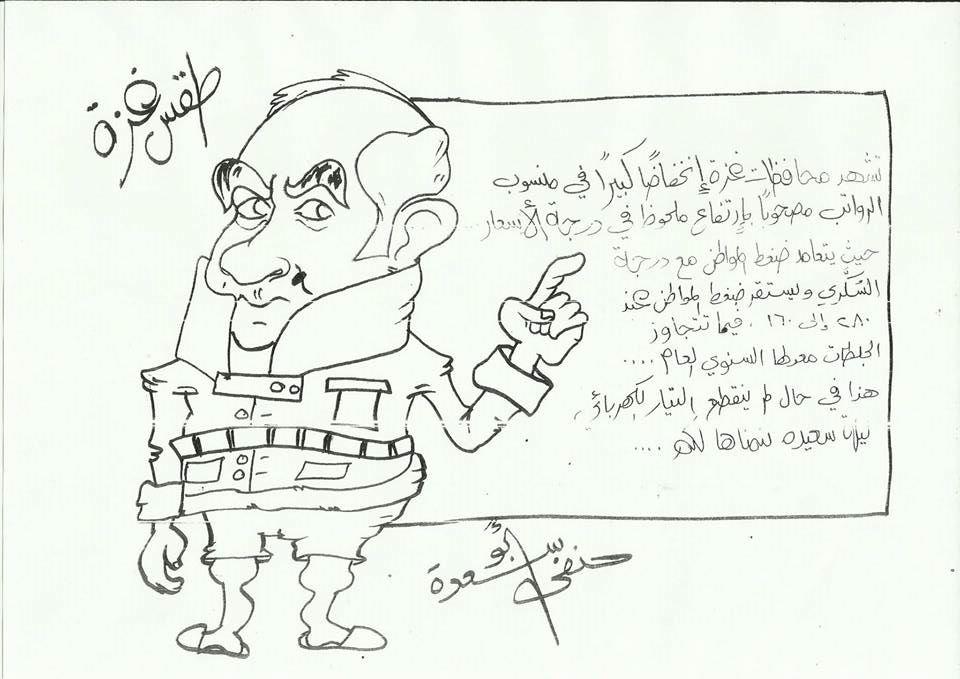 طقس غزة
تشهد محافظات غزة إنخفاضاً كبيراً في منسوب
الرواتب مصحوباً بإرتفاع ملحوظ في درجة الأسعار....
حيث يتعامد ضغط المواطن مع درجة
السّكّري ويستقر ضغط المواطن عند
٢٨٠ إلى ١٦٠ . فيما تتجاوز
الجلطات معدلها السنوي لعام ....
هذا في حال لم ينقطع التيار الكهربائي
سعيده نتمناها لكم ....
حنفي أبو سعدة